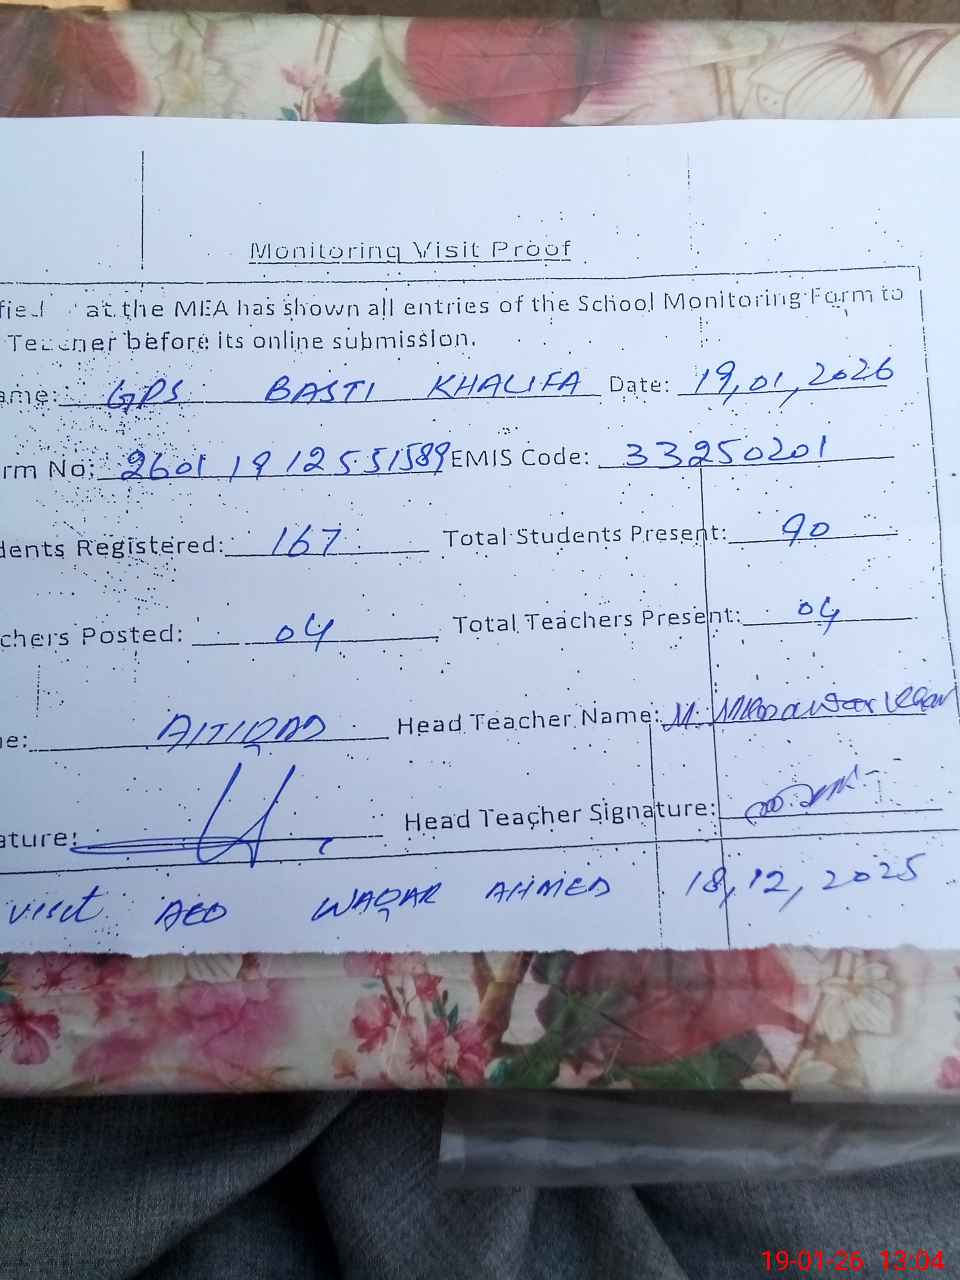 Monitoring Visit Proof
at the MEA has shown all entries of the School Monitoring Form to
Teacher before its online submission.
ame: GPS BASTI KHALIFA Date: 19,01,2026
rm No: 2601 19 12551589 EMIS Code: 33250201
dents Registered: 167 Total Students Present: 90
chers Posted: 04 Total Teachers Present: 04
e: AITIDAD Head Teacher Name: M.
ature: Head Teacher Signature:
visit AEO WAQAR AHMED 18,12,2025
19-01-26 13:04